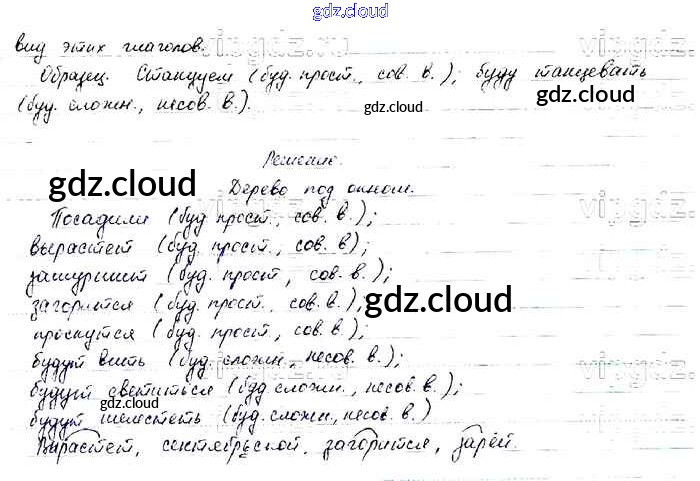 gdz.cloud
вид этих глаголов.
Образец. Станцуем (буд. прост., сов. в.); буду танцевать
(буд. сложн., несов. в.).
gdz.cloud
gdz.cloud
Решение.
gdz.cloud
Дерево под окном.
Посадили (буд. прост., сов. в.);
вырастет (буд. прост., сов. в);
зашуршит (буд. прост, сов. в.);
загорится (буд. прост., сов. в.),
gdz.cloud
проснутся (буд. прост, сов. в.);
будут вить (буд. сложн., несов. в.);
будут светиться (буд сложн., несов. в.);
gdz.cloud
будут шелестеть (буд. сложн., несов. в.)
Вырастет, сентябрьской, загорится, зарёй.